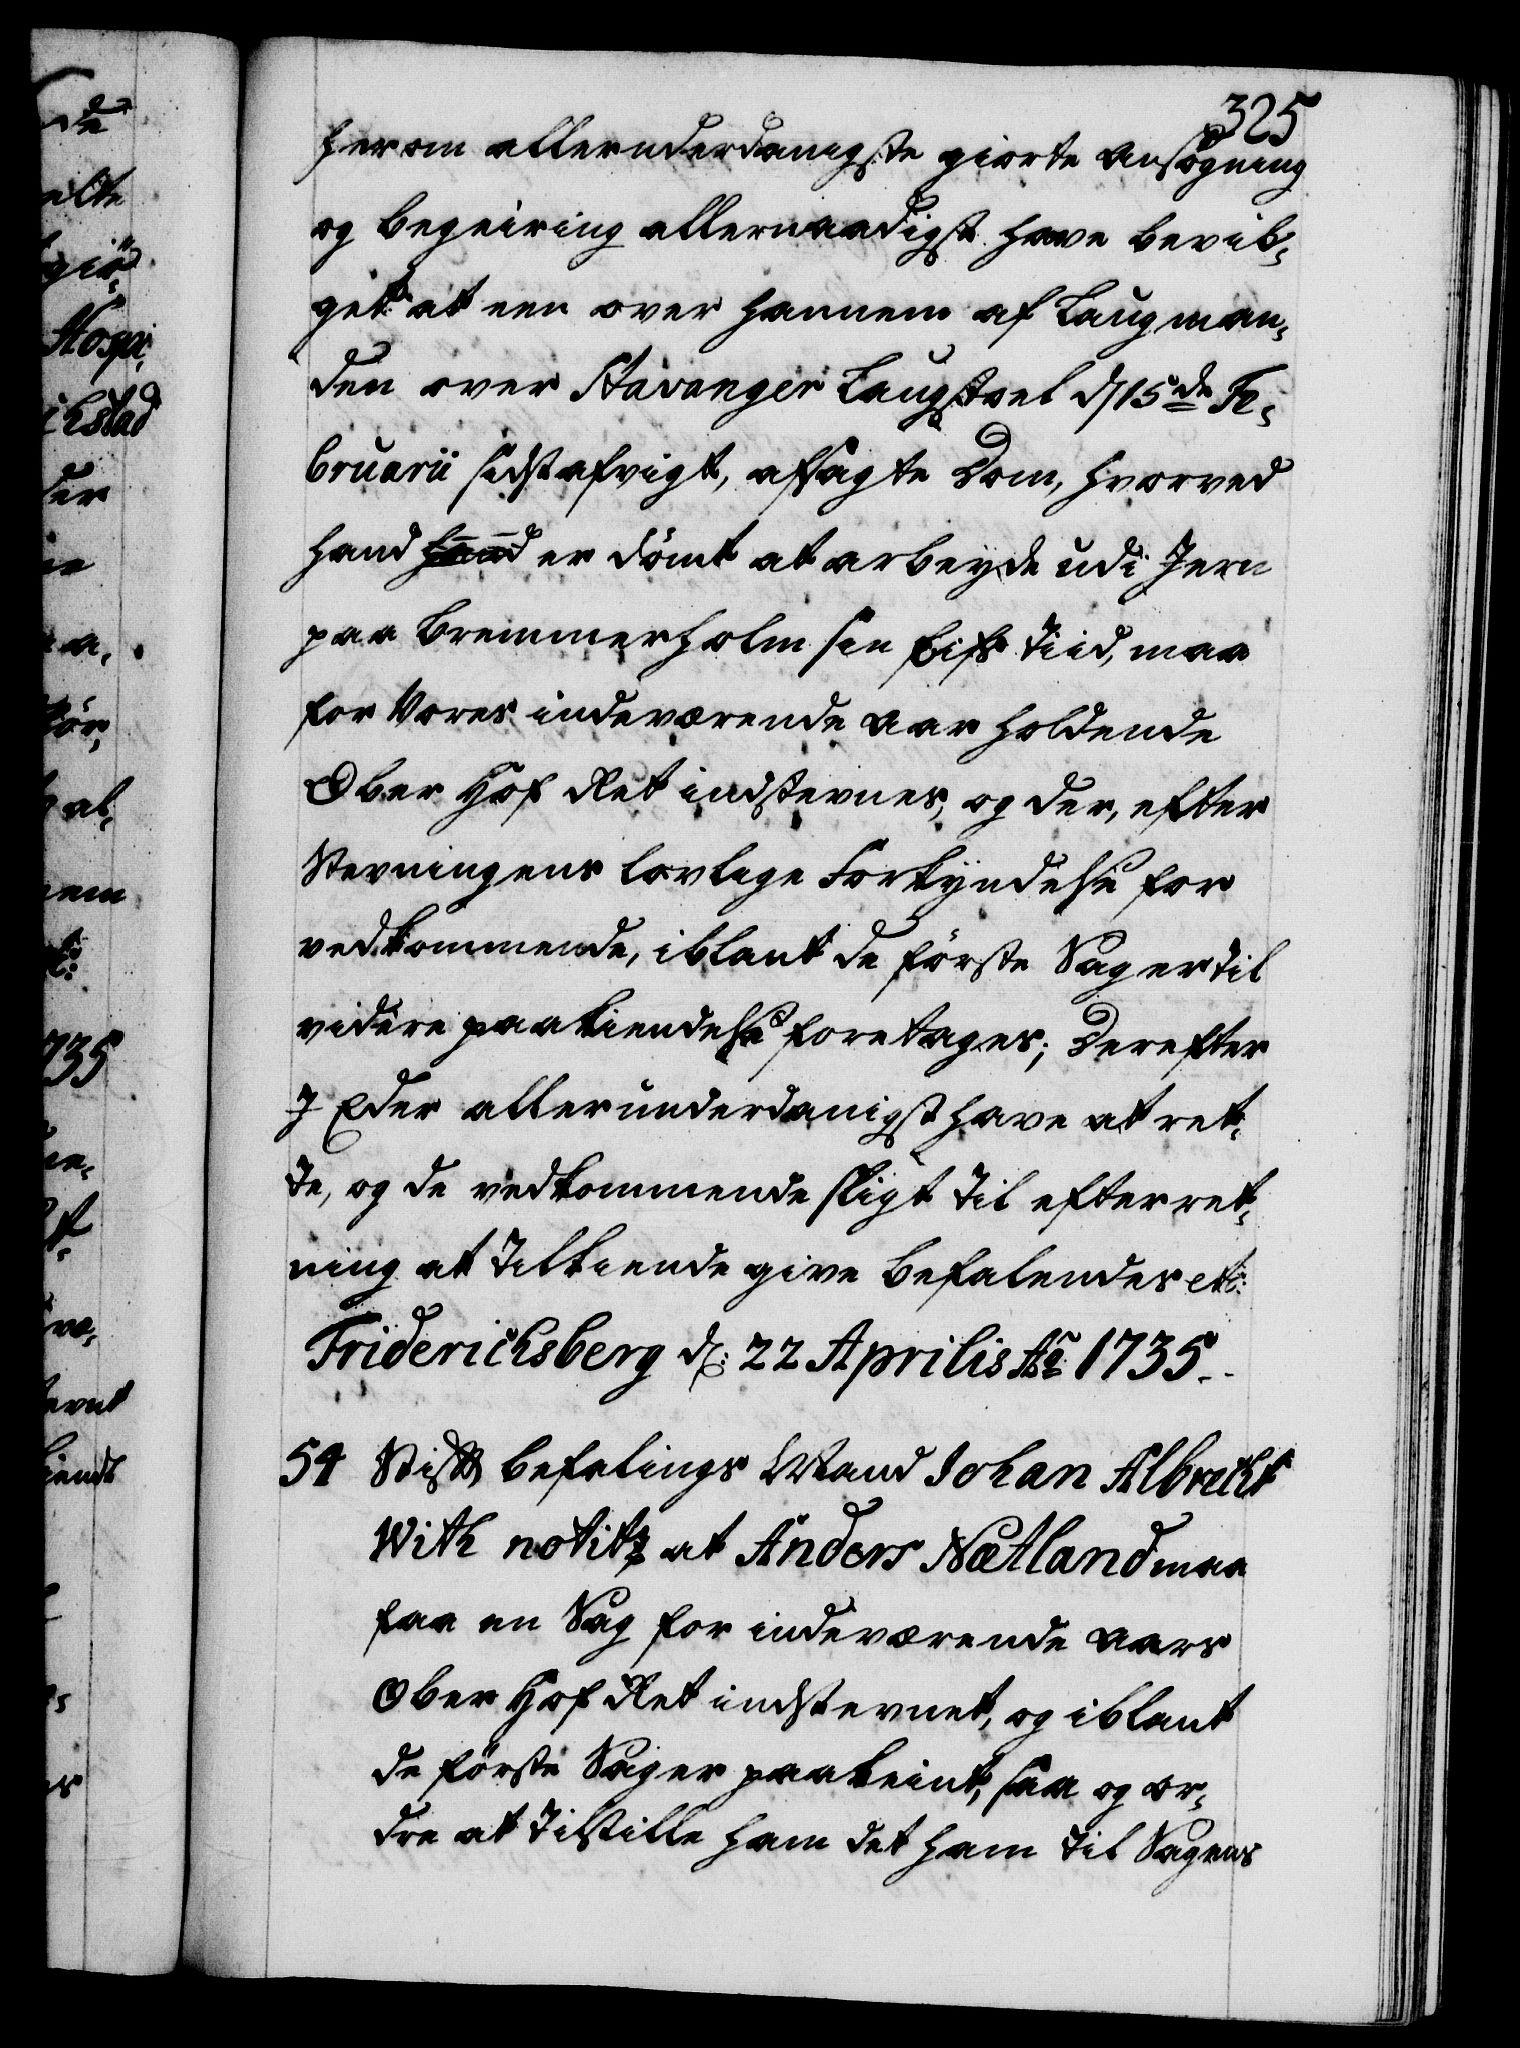 325
herom allerunderdanigste giorte Ansøgning
og begiering allernaadigst have bevil-
get at een over hannem af Laugman-
den over Stavanger Laugstoel d/ 15de Fe-
bruarii sidst afvigt, afsagte Dom, hvorved
hand hand er dömt at arbeyde udi Jern
paa Bremmerholm sin Lifs Tiid, maa
for Vores indeværende Aar holdende
Ober Hof Ret indstevnes, og der, efter
Stevningens lovlige Forkyndelse for
vedkommende, iblant de förste Sager til
videre paakiendelse foretages; Derefter
I Eder allerunderdanigst have at ret-
te, og de vedkommende sligt til efterret-
ning at Tilkiende give Befalendes etc:
Friderichsberg d: 22 Aprilis Ao 1735.
54 Stiftbefalings Mand Johan Albrecht
With notitz at Anders Nætland maa
faa en Sag for indeværende Aars
Ober Hof Ret indstevnet, og iblant
de förste Sager paakeint, saa og or-
dre at Tilstille ham det ham til Sagens